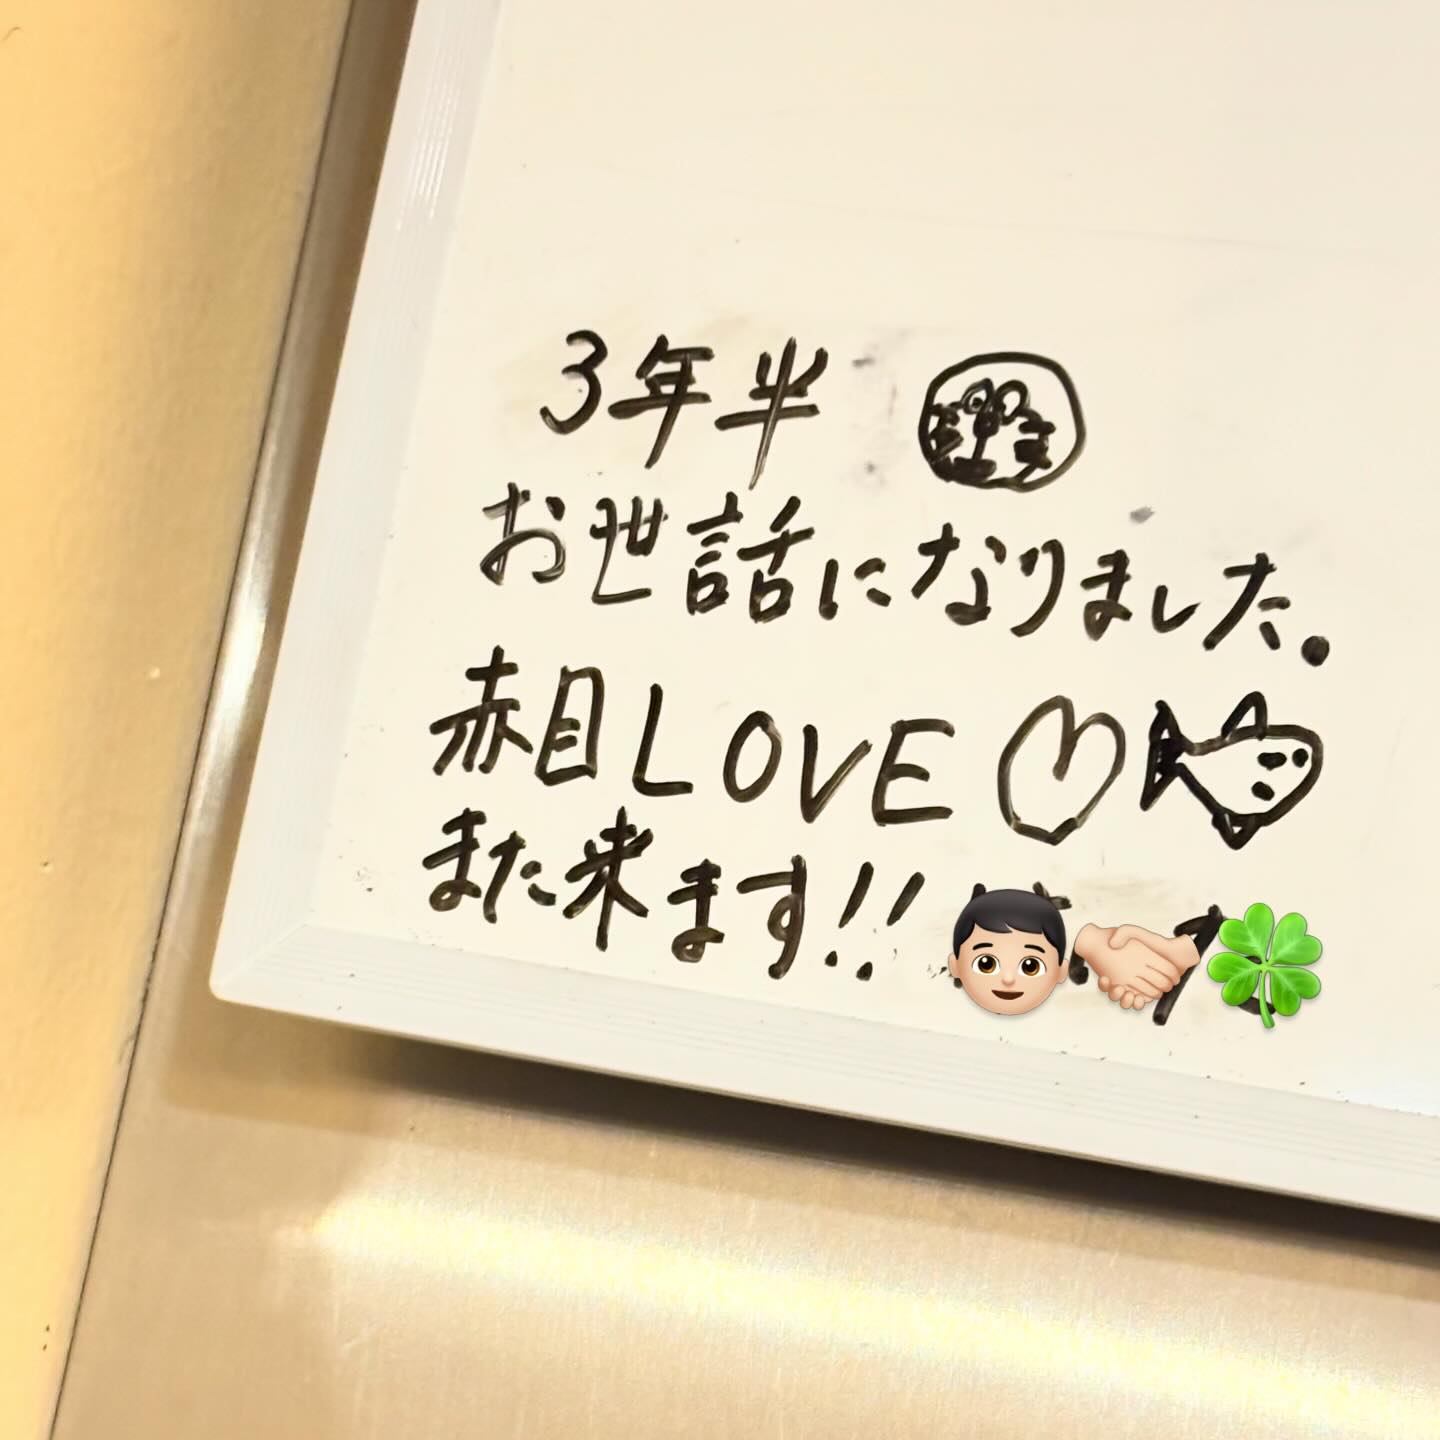 3年半
お世話になりました。
赤目LOVE
また来ます!!